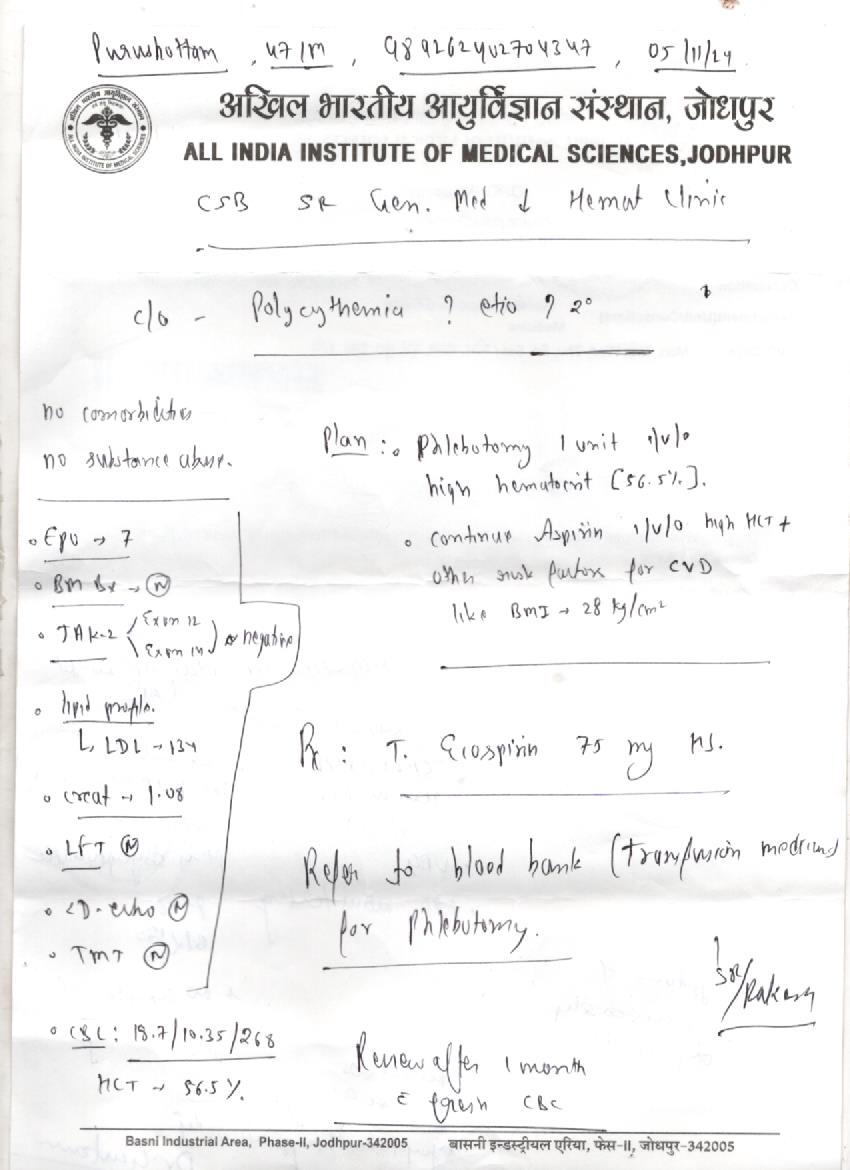 Purushottam , 47/M , 989262402704347 , 05/11/24
अखिल भारतीय आयुर्विज्ञान संस्थान, जोधपुर
ALL INDIA INSTITUTE OF MEDICAL SCIENCES,JODHPUR
CSB SR Gen. Med ↓ Hemat Clinic
c/o - Polycythemia ? etio ? 2°
no comorbidities
no substance abuse.
• Epo → 7
• BM Bx → (N)
• JAK-2 Exon 12
Exon 14 → negative
• lipid profile.
L, LDL → 134
• creat → 1.08
• LFT (N)
• 2D-echo (N)
• TMT (N)
• CBC: 18.7/10.35/268
HCT → 56.5%.
Plan :• Phlebotomy 1 unit i/v/o
high hematocrit [56.5%].
• continue Aspirin i/v/o high HCT +
other risk factors for CVD
like BMI → 28 kg/cm²
Rx : T. Ecospirin 75 mg HS.
Refer to blood bank (Transfusion medicine)
for Phlebotomy.
SR/Rakesh
Renew after 1 month
c fresh CBC
Basni Industrial Area, Phase-II, Jodhpur-342005
बासनी इन्डस्ट्रीयल एरिया, फेस-II, जोधपुर-342005